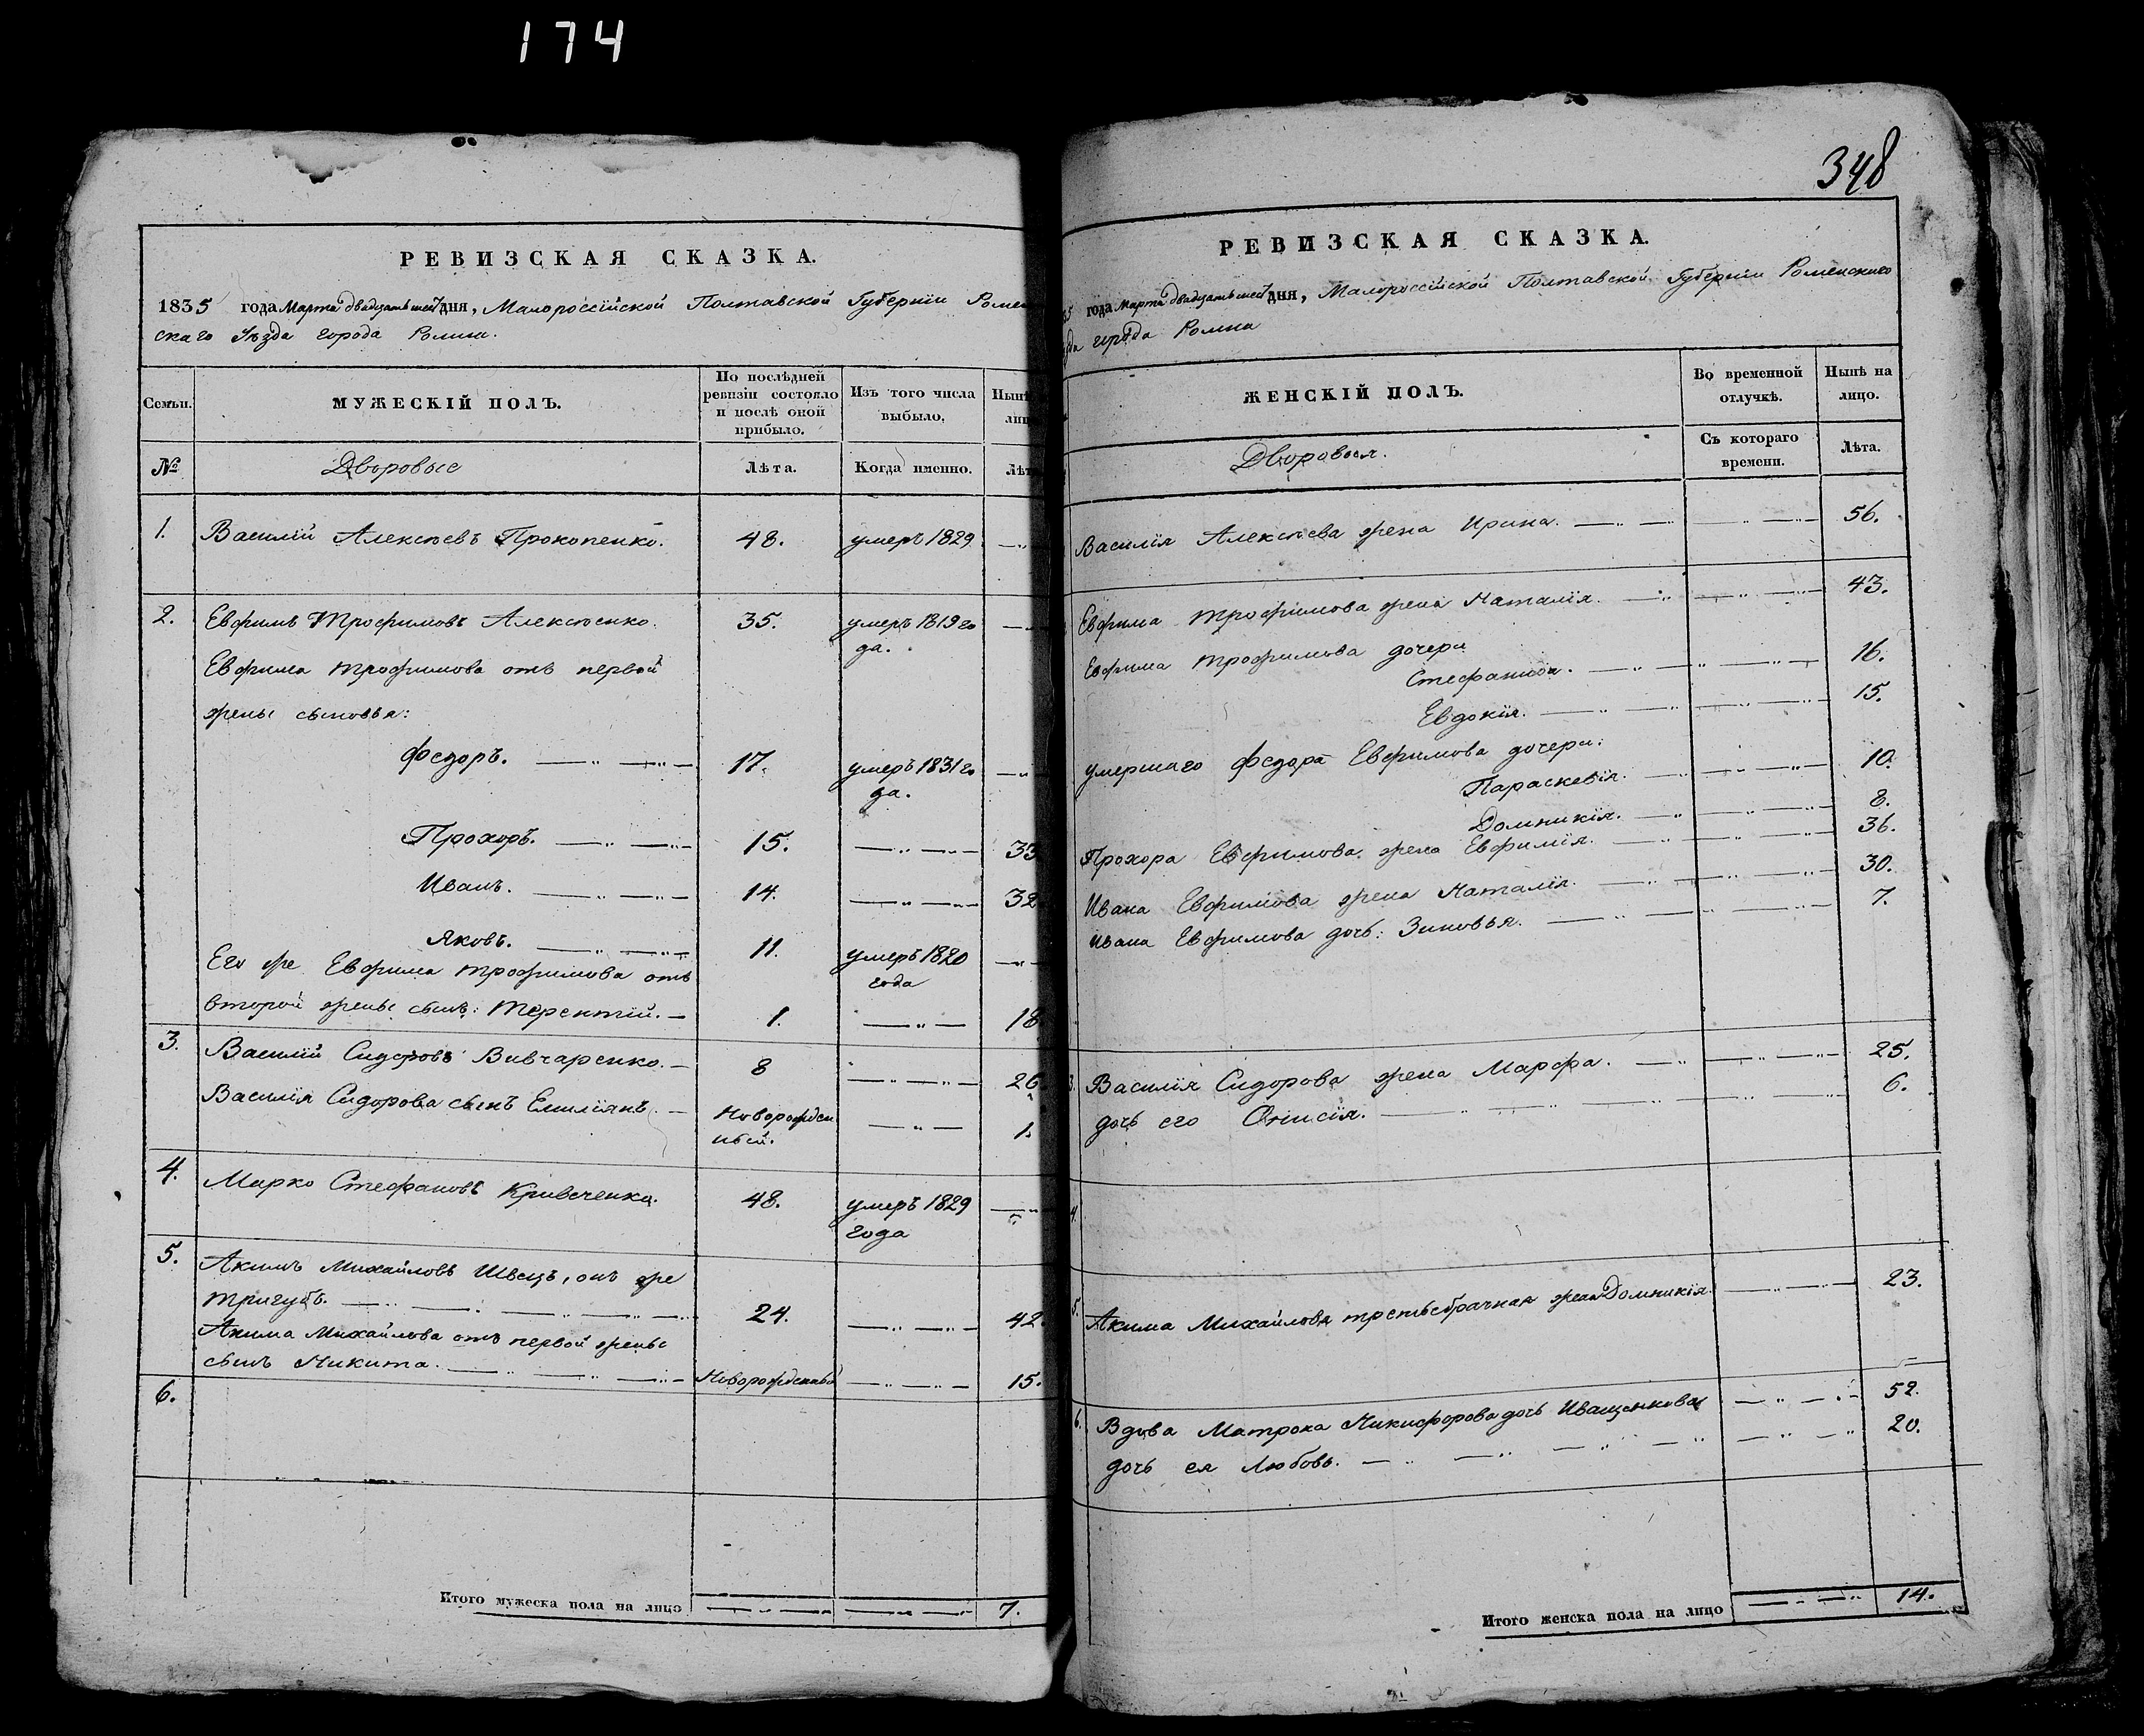 174
РЕВИЗСКАЯ СКАЗКА.
1835 года Марта двадцать дня, Малороссійской Полтавской Губерніи Ромен
скаго Уѣзда города Ромна.
Семьи.
МУЖЕСКІЙ ПОЛЪ.
По послѣдней ревизіи состояло и послѣ оной прибыло.
Изъ того числа выбыло,
№
Дворовые
Лѣта.
Когда именно.
1. Василій Алексѣевъ Прокопенко. 48. умеръ 1829
2. Евфимъ Трофимовъ Алексѣенко. 35. умеръ 1819 го
да.
Евфима Трофимова отъ первой
жены сыновья:
Федоръ. 17. умеръ 1831 го
да.
Прохоръ. 15. 33
Иванъ. 14. 32
Яковъ. 11. умеръ 1820
года
Его же Евфима Трофимова отъ
второй жены сынъ: Терентій. 1. 18
3. Василій Сидоровъ Вивчаренко. 8 26
Василія Сидорова сынъ Емиліянъ. Новорожден
ный. 1.
4. Марко Стефановъ Кривеченко. 48. умеръ 1829
года
5. Акимъ Михайловъ Швецъ, онъ же
Тригубъ. 24. 42.
Акима Михайлова отъ первой жены
сынъ Никита. Новорожденный 15.
6.
Итого мужеска пола на лицо 7.
348
РЕВИЗСКАЯ СКАЗКА.
35 года Марта двадцать дня, Малороссійской Полтавской Губерніи Роменскаго
да города Ромна
ЖЕНСКІЙ ПОЛЪ.
Во временной отлучкѣ.
Нынѣ на лицо.
Дворовыя.
Съ котораго времени.
Лѣта.
Василія Алексѣева жена Ирина. 56.
Евфима Трофимова жена Наталія. 43.
Евфима Трофимова дочери
Стефанида. 16.
Евдокія. 15.
умершаго Федора Евфимова дочери:
Параскевія. 10.
Домникія. 8.
Прохора Евфимова жена Евфимія. 36.
Ивана Евфимова жена Наталія. 30.
Ивана Евфимова дочь: Зиновья. 7.
3. Василія Сидорова жена Марфа. 25.
дочь его Онисія. 6.
4.
5. Акима Михайлова третьебрачная жена Домникія. 23.
6. Вдова Матрона Никифорова дочь Иващенкова 52.
дочь ея Любовь. 20.
Итого женска пола на лицо 14.